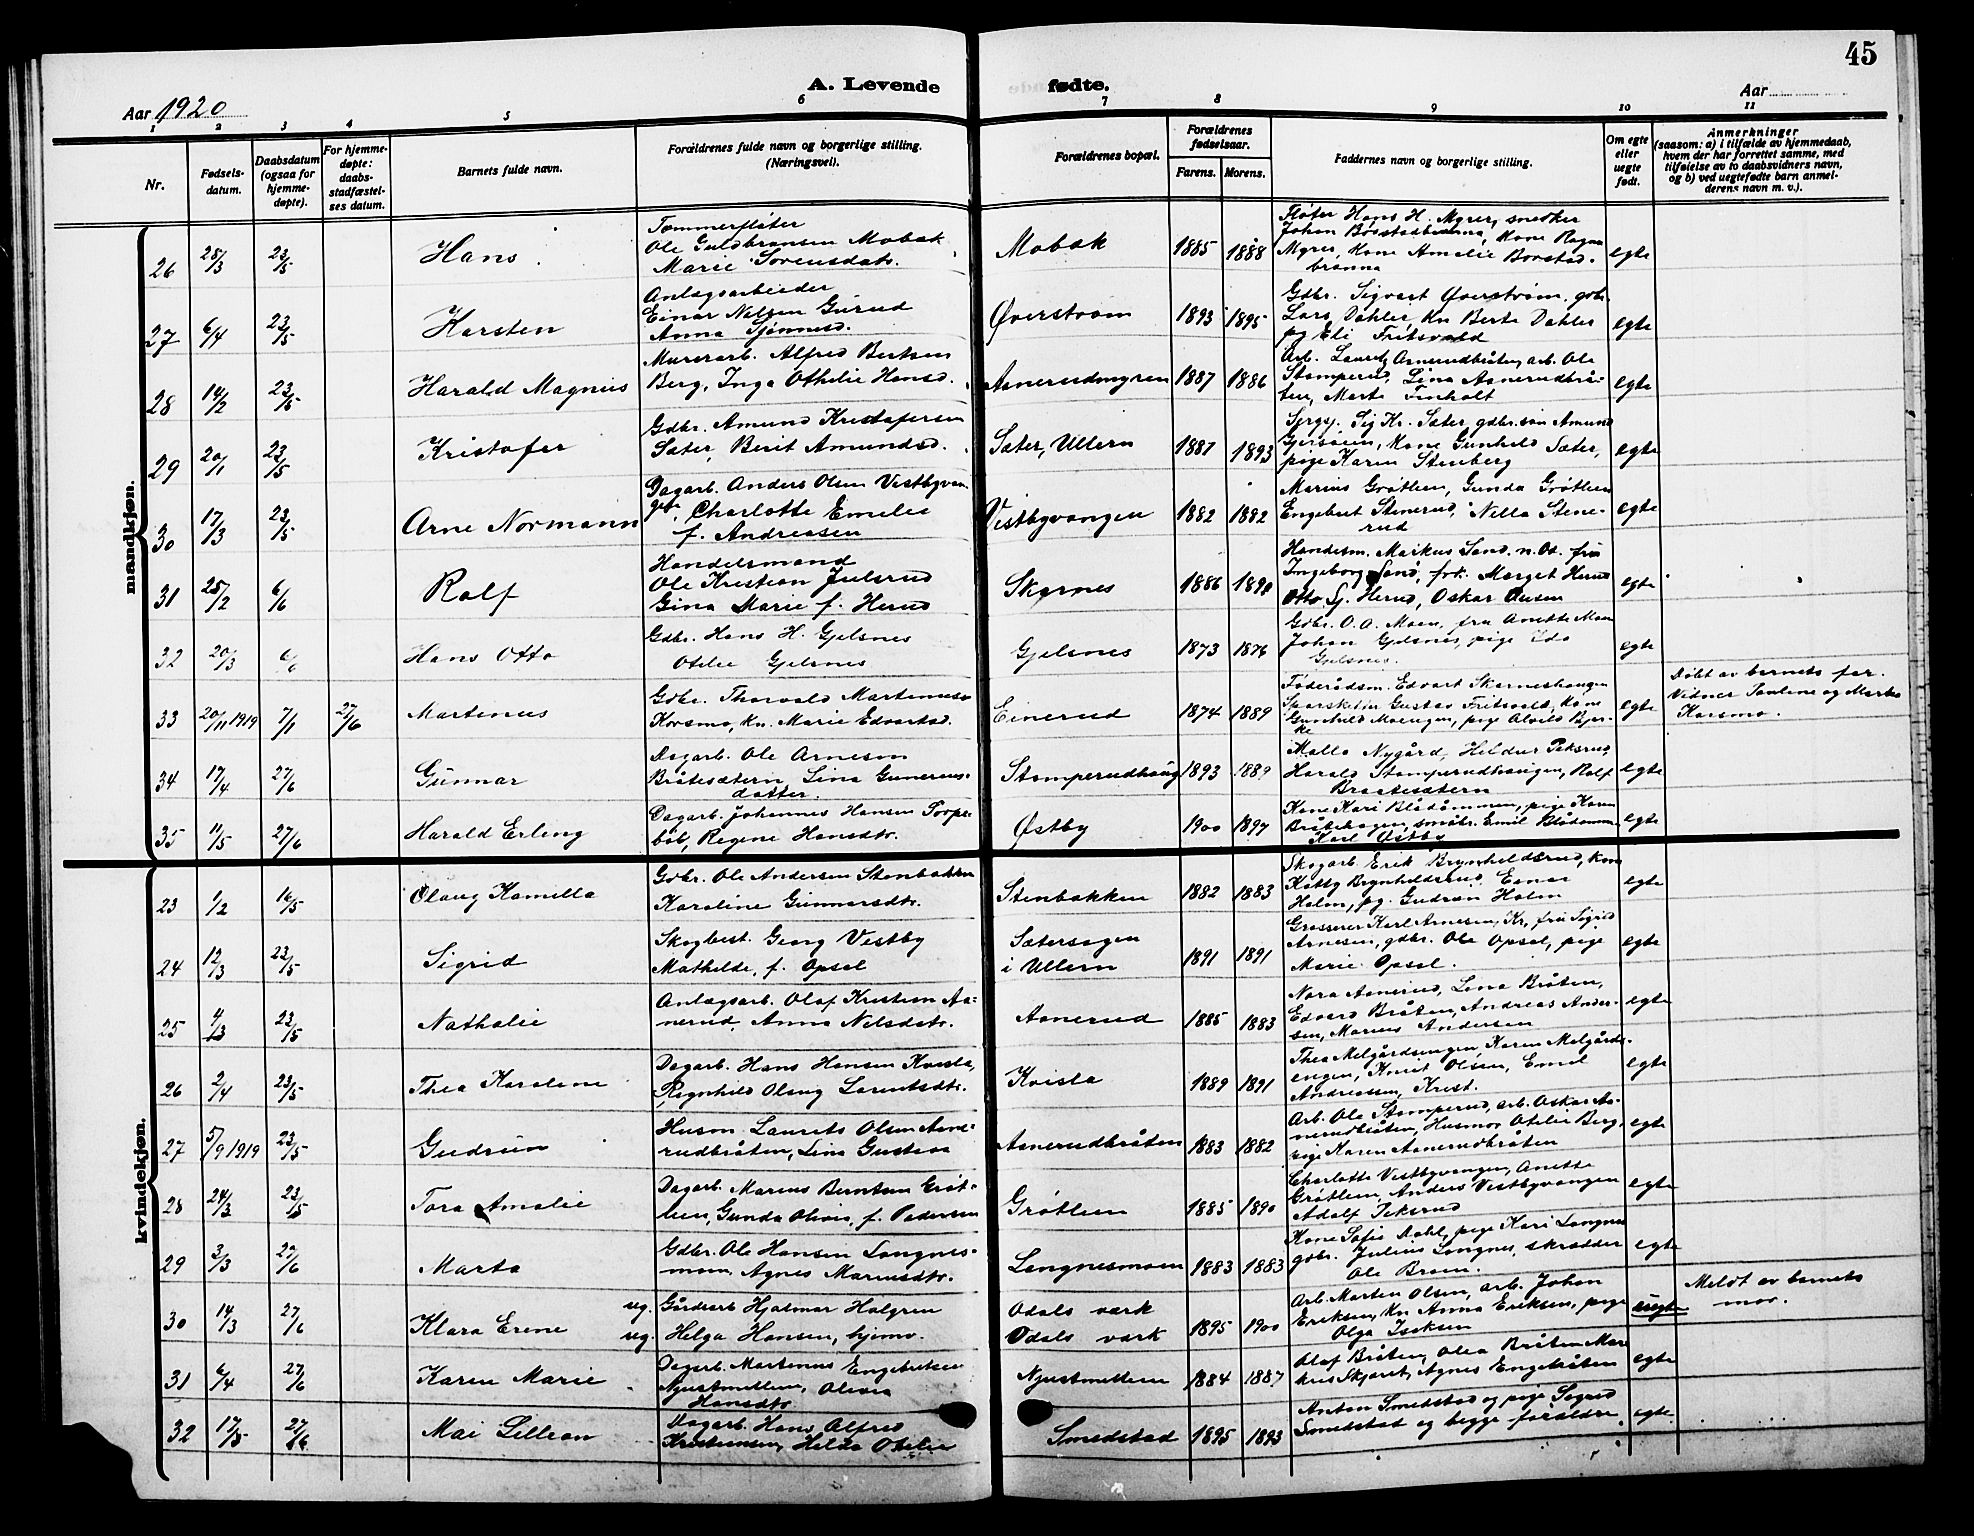 45
A. Levende fødte.
Aar 1920
Aar
1 2 3 4 5 6 7 8 9 10 11
Nr.
Fødsels-
datum.
Daabsdatum
(ogsaa for
hjemme-
døpte).
For hjemme-
døpte:
daabs-
stadfæstel-
ses datum.
Barnets fulde navn.
Forældrenes fulde navn og borgerlige stilling.
(Næringsvei).
Forældrenes bopæl.
Forældrenes
fødselsaar.
Farens. Morens.
Faddernes navn og borgerlige stilling.
Om egte
eller
uegte
født.
Anmerkninger
(saasom: a) i tilfælde av hjemmedaab,
hvem der har forrettet samme, med
tilføielse av to daabsvidners navn,
og b) ved uegtefødte barn anmel-
derens navn m. v.).
mandkjøn.
26 28/3 23/5 Hans
Tømmerfløter
Ole Guldbransen Mobæk
Marie Sorensdatr.
Mobæk 1885 1888
Fløter Hans H. Myrer, snedker
Johan, Kone Ragna
Myrer, Kone Amelie Borstad-
brænna
egte
27 6/4 23/5 Karsten
Anlægsarbeider
Einar Nilsen Gurud
Anna
Øverstrøm 1893 1895
Gdbr. Sigvart Øverstrøm, gdbr.
Lars Dahler, Kn Berte Dahler
pg Eli Fritsvold
egte
28 14/2 23/5 Harald Magnus
Murerarb. Alfred Bertsen
Berg, Inga Othelie Hansd.
Aanerudmyren 1887 1886
Arb. Laurits Aanerudbråten, arb. Ole
Stomperud, Lina Aanerudbrå-
ten, Marte Finholt
egte
29 20/1 23/5 Kristofer
Gdbr. Amund Kristofersen
Sæter, Berit Amundsd.
Sæter, Ullern 1887 1893
Sig Kr. Sæter, gdbr.søn Amund
Kone Gunhild Sæter,
pige Karen Stenberg
egte
30 17/3 23/5 Arne Normann
Dagarb. Anders Olsen Vestbyvan-
gen, Charlotte Emilie
f. Andreasen
Vestbyvangen 1882 1882
Marius Grøtlien, Gunda Grøtlien
Engebret Stenerud, Nella Stene-
rud
egte
31 25/2 6/6 Rolf
Handelsmand
Ole Kristian Julsrud
Gina Marie f. Herud
Skarnes 1886
Handelsm. Markus Sand. n. Od. fru
Ingeborg Sand, frk. Marget Herud
Otto Sj. Herud, Oskar Ausen
egte
32 20/3 6/6 Hans Otto
Gdbr. Hans H. Gjelsnes
Otelie Gjelsnes
Gjelsnes 1873 1876
Gdbr. O. A. Moen, fru Anette Moen
Johan Gjelsnes, pige Ida
Gjelsnes.
egte
33 20/11 1919 7/1 27/6 Martinus
Gdbr. Thorvald Martinusen
Korsmo, Kn. Marie Edvartsd.
Einerud 1874 1889
Føderådsm. Edvart Skarneshaugen
Gustav Fritsvold, Kone
Gunhild Moengen, pige Alvild Bjer-
ke
egte
Døbt av barnets far.
Vidner Pauline og Marta
Korsmo.
34 17/4 27/6 Gunnar
Dagarb. Ole Arnesen
Bråtesætern, Lina Gunerius-
datter.
Stomperudhaug 1893 1889
Malla Nygård, Heldur Peksrud
Harald Stomperudhaugen, Rolf
Braatesætern
egte
35 11/5 27/6 Harald Erling
Dagarb. Johannes Hansen Torpe-
böl, Regene Hansdtr.
Østby 1900 1897
Kone Kari Blådammen, pige Karen
Bråtehagen, småbr. Emil Blådammen
Karl Østby
egte
kvindekjøn.
23 1/2 16/5 Olaug Kamilla
Gdbr. Ole Andersen Stenbakken
Karoline Gunnarsdtr.
Stenbakken 1882 1883
Skogarb. Erik Brynhildsrud, kone
Katty Brynhildsrud, Einar
Holm, pg. Gudrun Holm
egte
24 12/3 23/5 Sigrid
Skogbest. Georg Vestby
Mathilde, f. Opsal
Sætersagen
i Ullern 1891 1891
Grosserer Karl Arnesen, Kr, fru Sigrid
Arnesen, gdbr. Ole Opsal, pige
Marie Opsal.
egte
25 4/3 23/5 Nathalie
Anlægsarb. Olaf Kristian Aa-
nerud, Anna Nilsdtr.
Aanerud 1885 1883
Nora Aanerud, Lena Bråten,
Edvard Bråten, Andreas Ander-
sen, Marius Andersen
egte
26 2/4 23/5 Thea Karoline
Dagarb. Hans Hansen Kvisla,
Ragnhild Olaug Larentsdtr.
Kvisla 1889 1891
Thea Melgårdsengen, Karen Melgårds-
engen, Knut Olsen, Emil
Andreassen, Krist.
egte
27 5/9 1919 23/5 Gudrun
Husm. Laurits Olsen Aane-
rudbråten, Lina Gustava
Aanerudbråten 1883 1882
Arb. Ole Stomperud, arb. Oskar Aa-
nerudbråten, Husmor Otelie Berg,
pige Karen Aanerudbråten
egte
28 24/3 23/5 Tora Amalie
Dagarb. Marius Berntsen Grøt-
lien, Gunda Olivia, f. Pedersen
Grøtlien 1885 1890
Charlotte Vestbyvangen, Anette
Grøtlien, Anders Vestbyvangen
Adolf Peksrud
egte
29 3/3 27/6 Marta
Gdbr. Ole Hansen Langnes-
moen, Agnes Mariusdtr.
Langnesmoen 1883 1883
Kone Sofie Dahl, pige Kari Langnes
gdbr. Julius Langnes, skrædder
Ole Braen.
egte
30 14/3 27/6 Klara Erene
ug. Gårdsarb Hjalmar Holgren
ug. Helga Hansen, hjemv.
Odals værk
Odals værk 1895 1900
Arb. Martin Olsen, arb. Johan
Eriksen, Kn Anna Eriksen, pige
Olga Isaksen
uegte
Meldt av barnets
mor.
31 6/4 27/6 Karen Marie
Dagarb. Martinus Engebretsen
Njustmellem, Olivia
Hansdtr
Njustmellem 1884 1887
Olaf Bråten, Olea Bråten, Mar-
kus Skjæret, Agnes Engebråten
egte
32 17/5 27/6 Mai Lillian
Dagarb. Hans Alfred
Kristiansen, Helda Otelie
Smedstad 1895 1893
Anton Smedstad og pige Sigrid
Smedstad og begge forældre.
egte